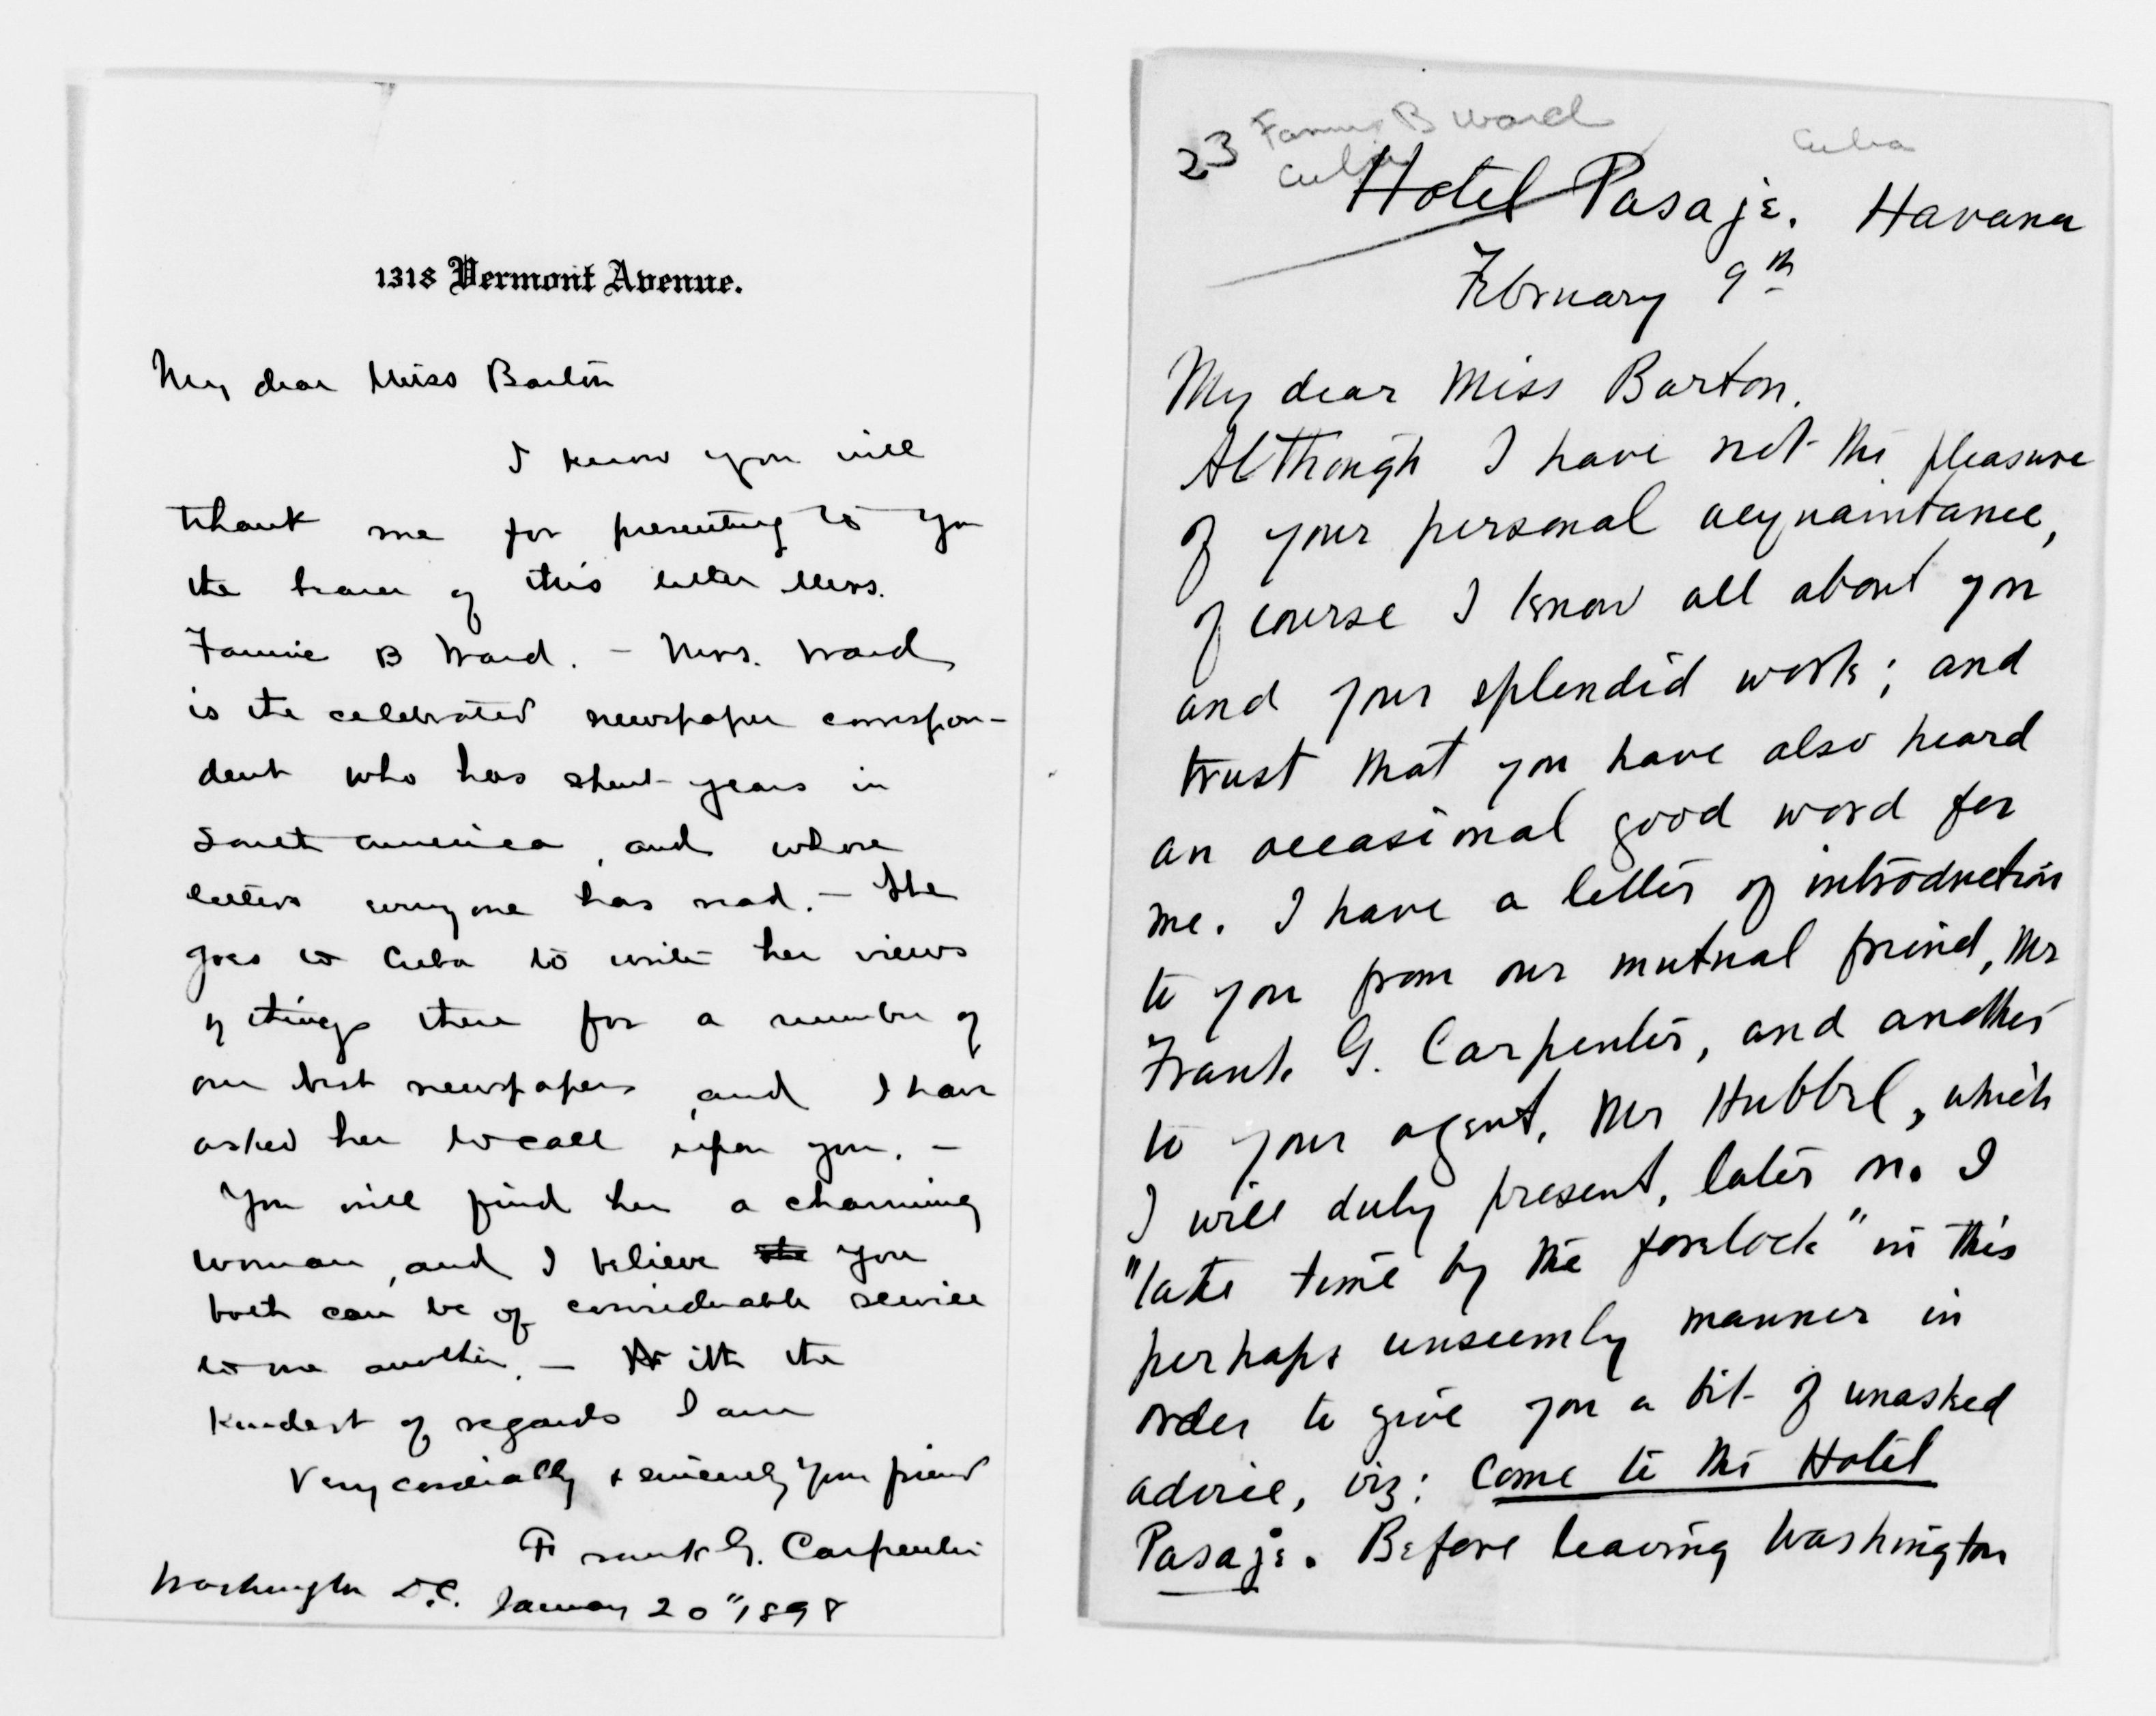 1318 Vermont Avenue.
My dear Miss Barton
I know you will
thank me for presenting to you
the bearer of this letter Mrs.
Fannie B Ward. – Mrs. Ward
is the celebrated newspaper correspon-
dent who has spent years in
South America, and whose
letters everyone has read. – She
goes to Cuba to write her views
of things there for a number of
our best newspapers, and I have
asked her to call upon you. –
You will find her a charming
woman, and I believe she you
both can be of considerable service
to one another. – With the
kindest of regards I am
Very cordially & sincerely your friend
Frank G. Carpenter
Washington D.C. January 20" 1898
23 Fannie B Ward
Cuba
Cuba
Hotel Pasaje. Havana
February 9th
My dear Miss Barton.
Although I have not the pleasure
of your personal acquaintance,
of course I know all about you
and your splendid work; and
trust that you have also heard
an occasional good word for
me. I have a letter of introduction
to you from our mutual friend, Mr
Frank G. Carpenter, and another
to your agent, Mr Hubbel, which
I will duly present, later on. I
"take time by the forelock" in this
perhaps unseemly manner in
order to give you a bit of unasked
advice, viz: Come to the Hotel
Pasaje. Before leaving Washington